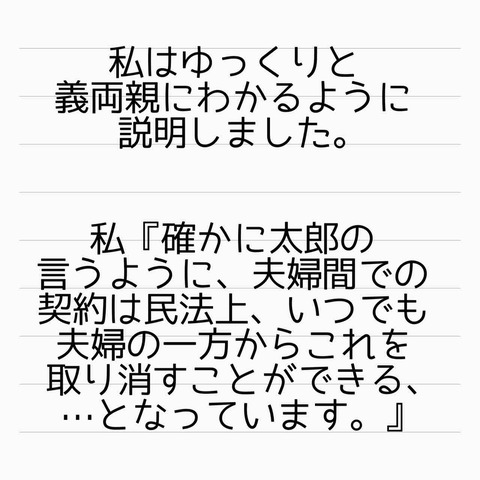 私はゆっくりと
義両親にわかるように
説明しました。
私『確かに太郎の
言うように、夫婦間での
契約は民法上、いつでも
夫婦の一方からこれを
取り消すことができる、
…となっています。』